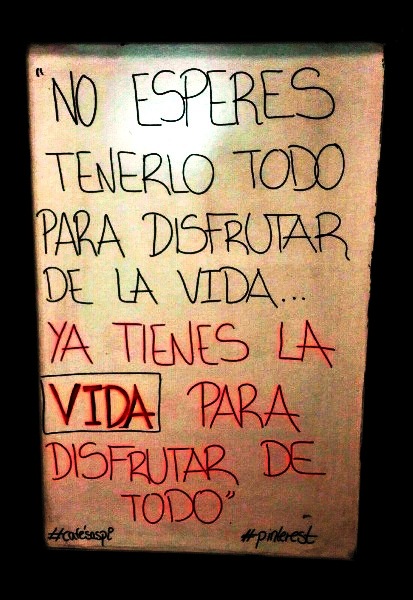 "NO ESPERES
TENERLO TODO
PARA DISFRUTAR
DE LA VIDA...
YA TIENES LA
VIDA PARA
DISFRUTAR DE
TODO"
#pinterest